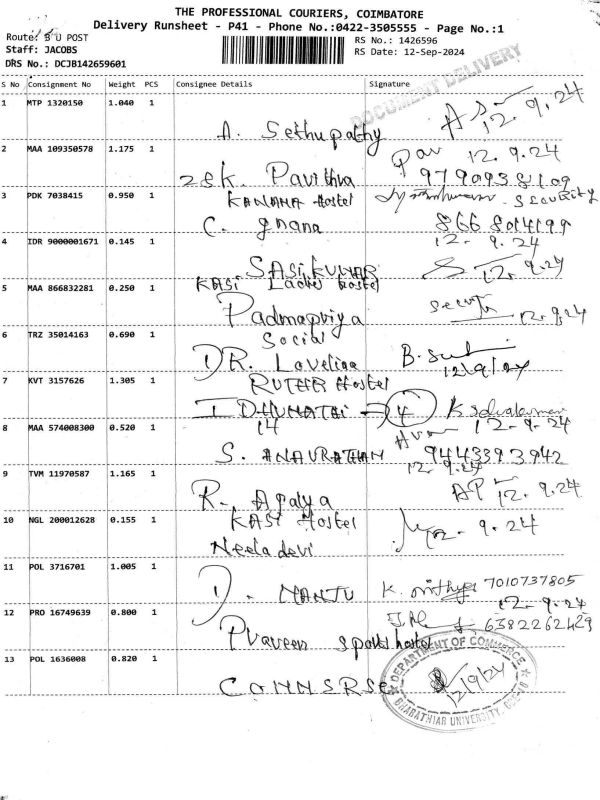 THE PROFESSIONAL COURIERS, COIMBATORE
Delivery Runsheet - P41 - Phone No.:0422-3505555 - Page No.:1
Route: B U POST
Staff: JACOBS
DRS No.: DCJB142659601
RS No.: 1426596
RS Date: 12-Sep-2024
DOCUMENT DELIVERY
S No Consignment No Weight PCS Consignee Details Signature
1 MTP 1320150 1.040 1
A. Sethupathy 12.9.24
2 MAA 109350578 1.175 1 12.9.24
28k. Pavithra 9790938109
3 PDK 7038415 0.950 1 KANAHA Hostel Security
C. gnana 866 8014199
4 IDR 9000001671 0.145 1 12-9.24
SASIKUMAR 12.9.24
5 MAA 866832281 0.250 1 KASI Ladies hostel
Padmapriya 12.9.24
6 TRZ 35014163 0.690 1 Social
DR. Loveline 12/9/24
7 KVT 3157626 1.305 1 RUTHR Hostel
IDHUMATHI 4 K Selvakumar
8 MAA 574008300 0.520 1 14 12-9.24
S. ANAVRATHAN 9443393942
12.9.24
9 TVM 11970587 1.165 1
R. Apalya AP 12.9.24
10 NGL 200012628 0.155 1 KASI Hostel 12-9.24
Neeladevi
11 POL 3716701 1.005 1
D. MANJU K. 7010737805
12-9.24
12 PRO 16749639 0.800 1 6382262429
Praveen sports hostel
13 POL 1636008 0.820 1
COMMSRSE
DEPARTMENT OF COMMERCE
12/9/24
BHARATHIAR UNIVERSITY, CBE-46